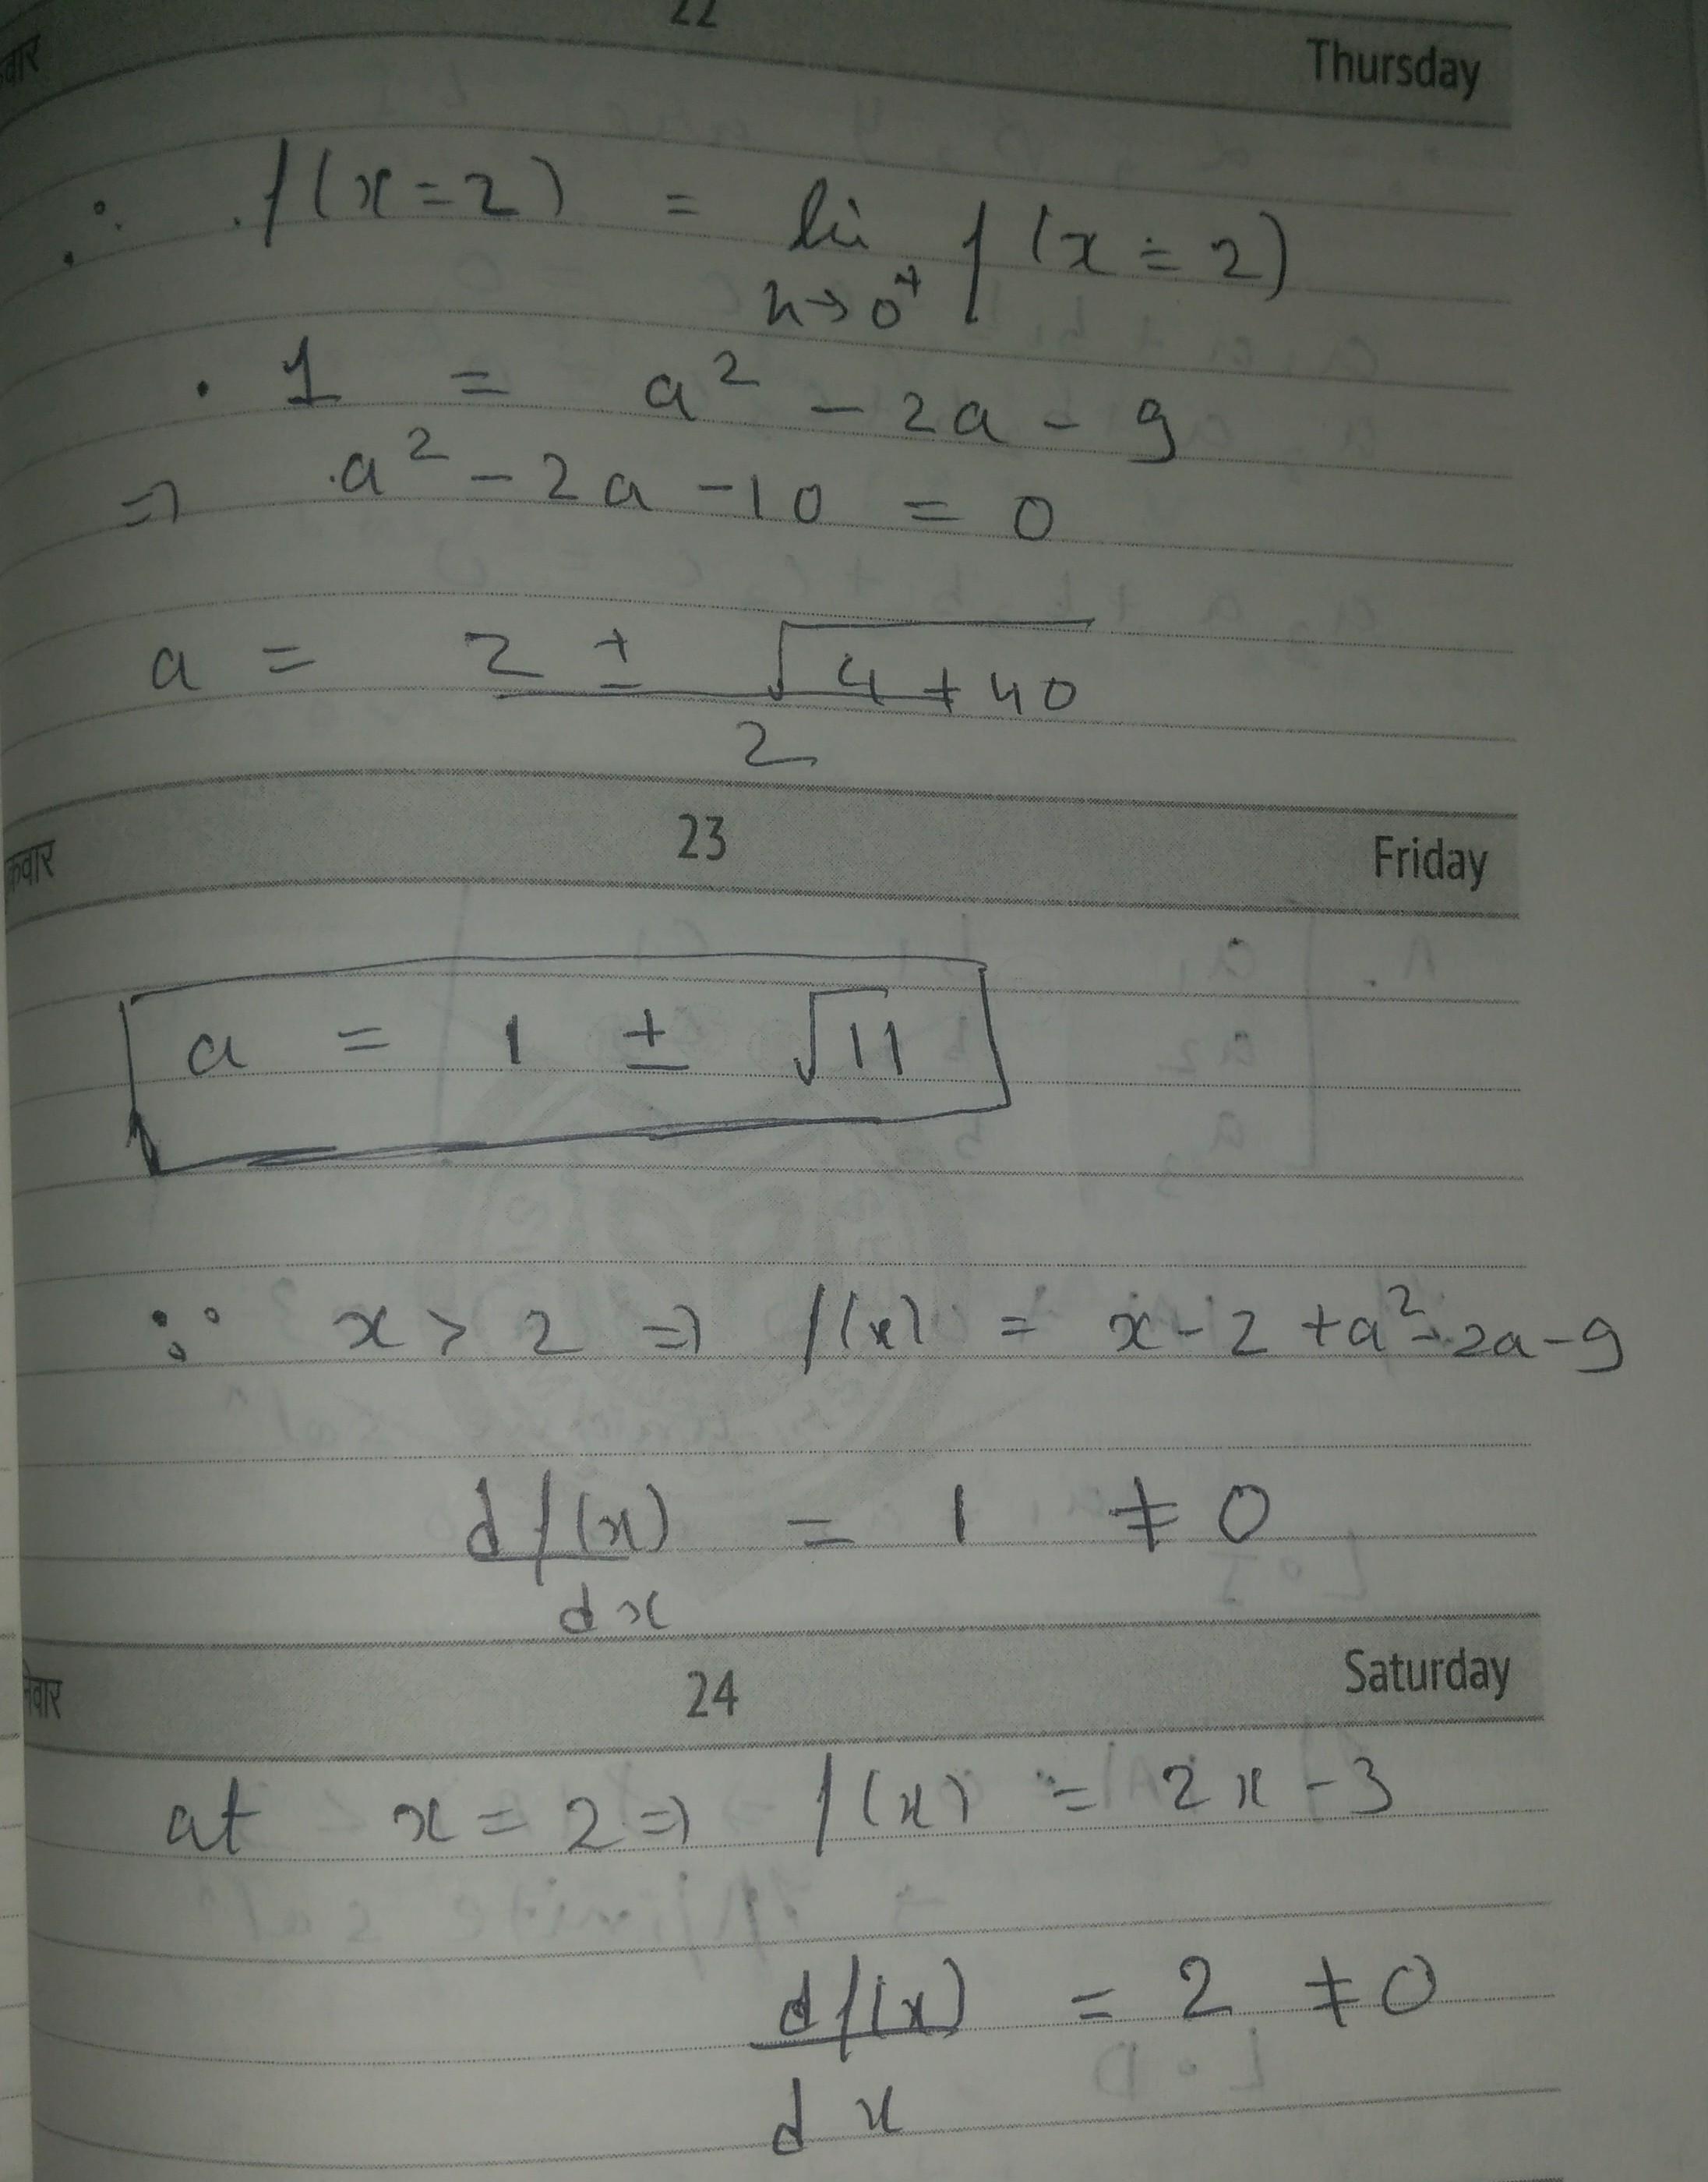 22
वार Thursday
∴ f(x=2) = li f(x=2)
h→0⁺
1 = a² - 2a - 9
⇒ a² - 2a - 10 = 0
a = 2 ± √4+40
2
23
Friday
a = 1 ± √11
∵ x > 2 ⇒ f(x) = x-2+a²-2a-9
df(x) = 1 ≠ 0
dx
24
Saturday
at x = 2 ⇒ f(x) = 2x-3
df(x) = 2 ≠ 0
dx